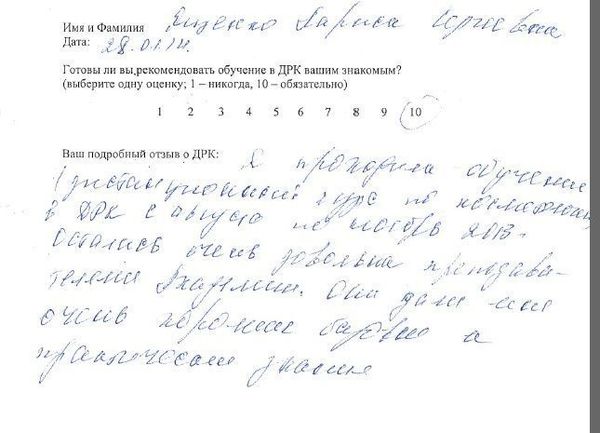 Имя и Фамилия Ященко Лариса Юрьевна
Дата: 28.01.14.
Готовы ли вы,рекомендовать обучение в ДРК вашим знакомым?
(выберите одну оценку; 1 – никогда, 10 – обязательно)
1 2 3 4 5 6 7 8 9 10
Ваш подробный отзыв о ДРК: Я проходила обучение
(дистанционный курс по
в ДРК с августа по ноябрь 2013.
Осталась очень довольна преподава-
телями Академии. Они дали мне
очень хорошие базовые и
практические знания